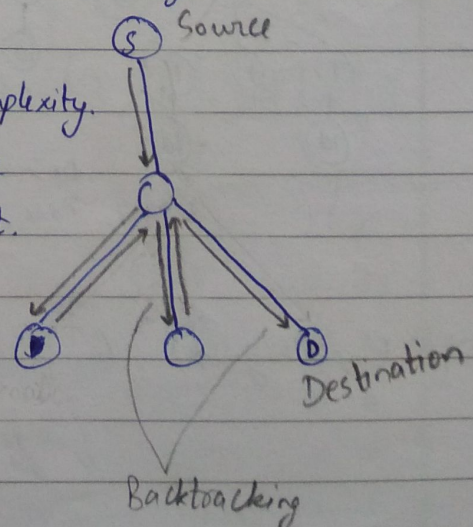 S Source
plexity.
t.
D
Destination
Backtracking